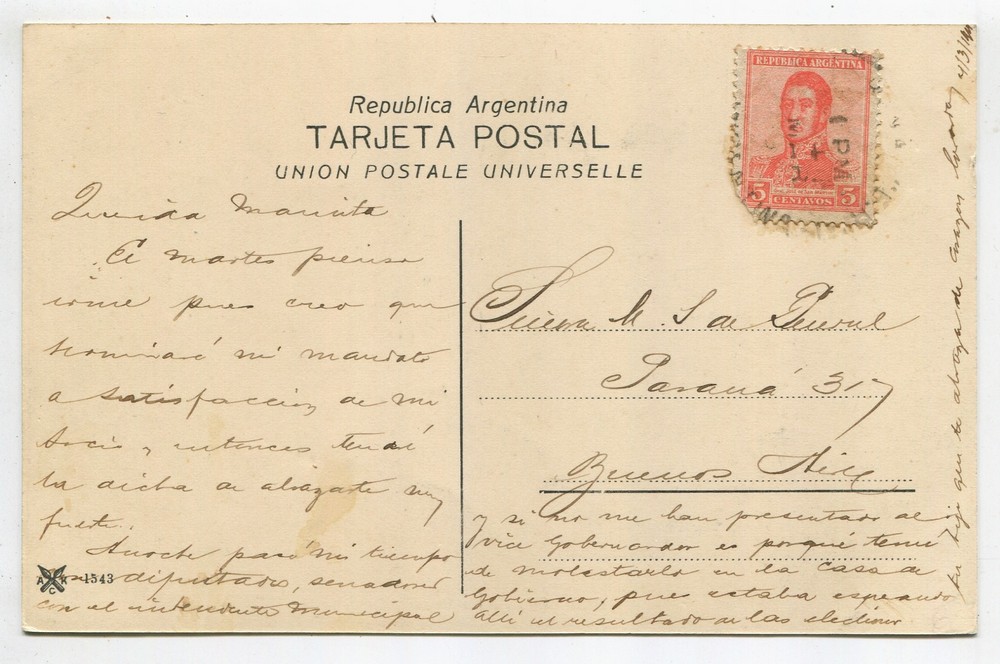 Republica Argentina
TARJETA POSTAL
UNION POSTALE UNIVERSELLE
REPUBLICA ARGENTINA
1 PM
5 CENTAVOS 5
Querida
El martes pienso
irme pues creo que
terminaré mi mandato
a satisfaccion de mi
socio y entonces tendré
la dicha de abrazarte muy
fuerte.
Anoche pasé mi tiempo
con diputados, senadores
con el intendente Municipal
y si no me han presentado al
Vice Gobernador es porqué temí
de molestarlo en la Casa de
Gobierno, pues estaba esperando
alli el resultado de las
tu hijo que te abraza de
Señora M. S de
Paraná 317
Buenos Aires
A K C
1543